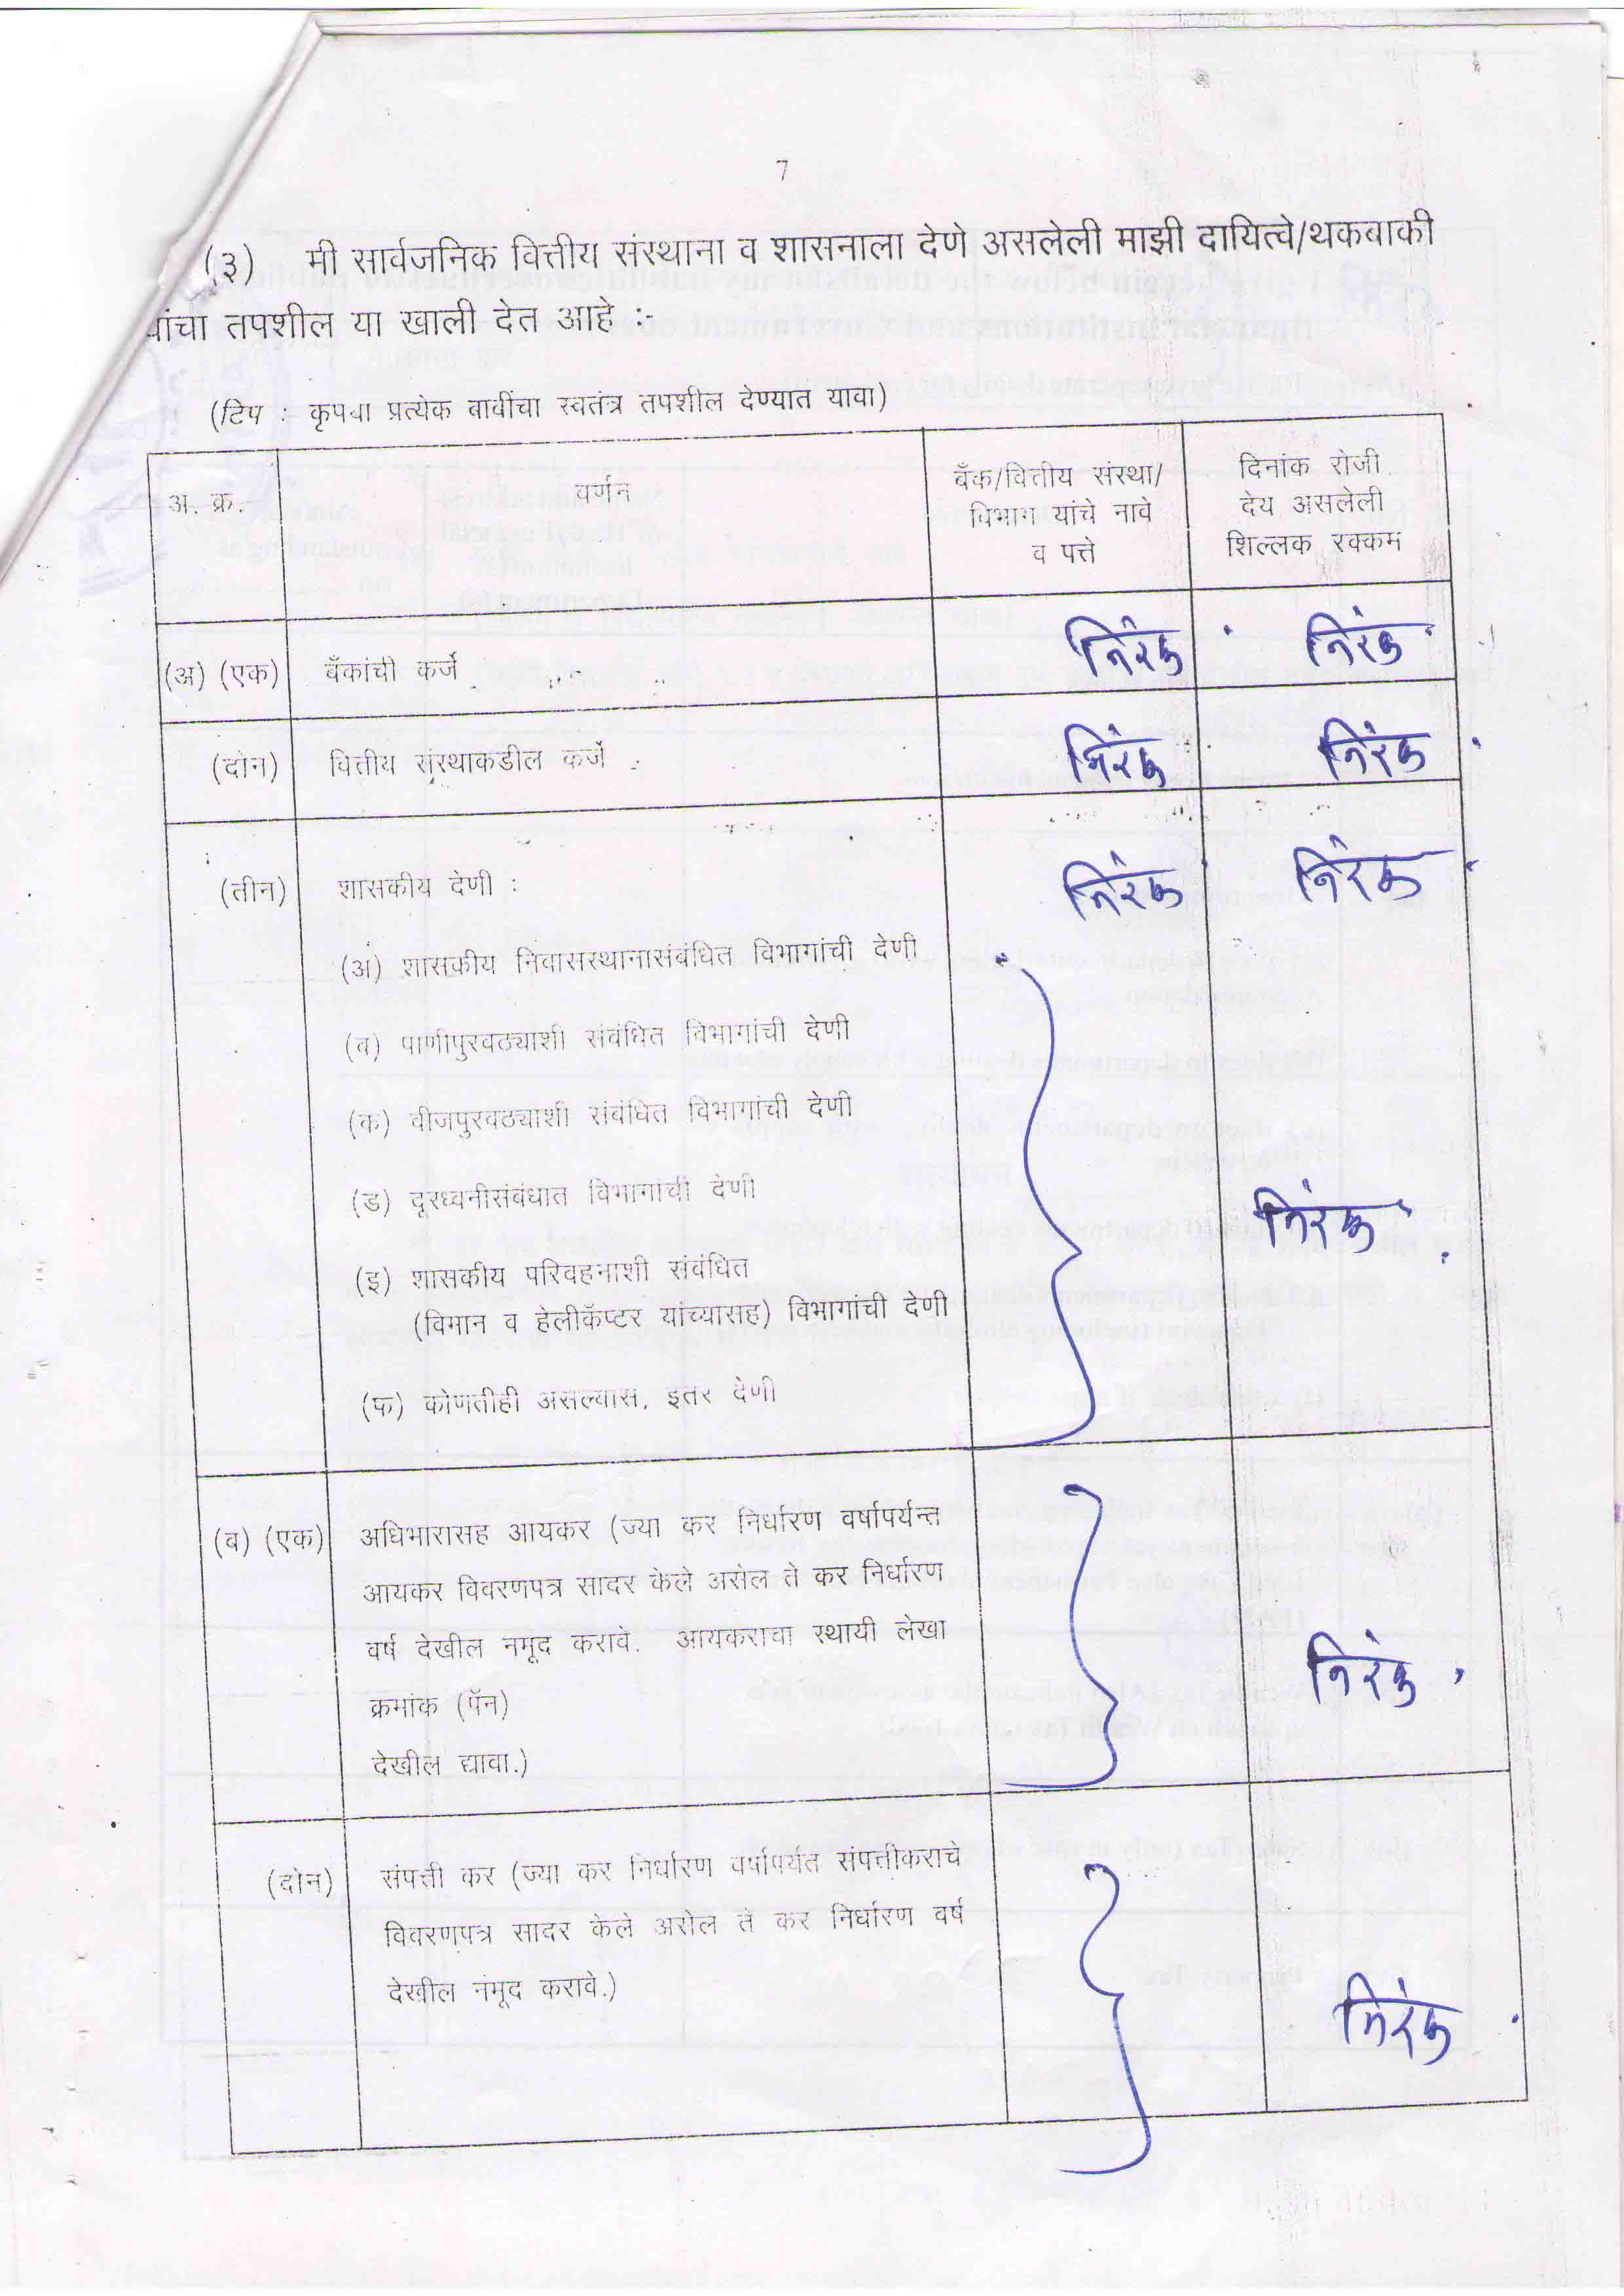 7
(३) मी सार्वजनिक वित्तीय संस्थाना व शासनाला देणे असलेली माझी दायित्वे/थकबाकी
यांचा तपशील या खाली देत आहे :-
(टिप : कृपया प्रत्येक बाबींचा स्वतंत्र तपशील देण्यात यावा)
अ. क्र. वर्णन बँक/वित्तीय संस्था/ दिनांक रोजी
विभाग यांचे नावे देय असलेली
व पत्ते शिल्लक रक्कम
(अ) (एक) बँकांची कर्जे निरंक निरंक
(दोन) वित्तीय संस्थाकडील कर्जे निरंक निरंक
(तीन) शासकीय देणी : निरंक निरंक
(अ) शासकीय निवासस्थानासंबंधित विभागांची देणी
(ब) पाणीपुरवठ्याशी संबंधित विभागांची देणी
(क) वीजपुरवठ्याशी संबंधित विभागांची देणी
(ड) दूरध्वनीसंबंधात विभागांची देणी निरंक
(इ) शासकीय परिवहनाशी संबंधित
(विमान व हेलीकॅप्टर यांच्यासह) विभागांची देणी
(फ) कोणतीही असल्यास, इतर देणी
(ब) (एक) अधिभारासह आयकर (ज्या कर निर्धारण वर्षापर्यन्त
आयकर विवरणपत्र सादर केले असेल ते कर निर्धारण
वर्ष देखील नमूद करावे. आयकराचा स्थायी लेखा
क्रमांक (पॅन) निरंक
देखील द्यावा.)
(दोन) संपत्ती कर (ज्या कर निर्धारण वर्षापर्यंत संपत्तीकराचे
विवरणपत्र सादर केले असेल ते कर निर्धारण वर्ष
देखील नमूद करावे.) निरंक